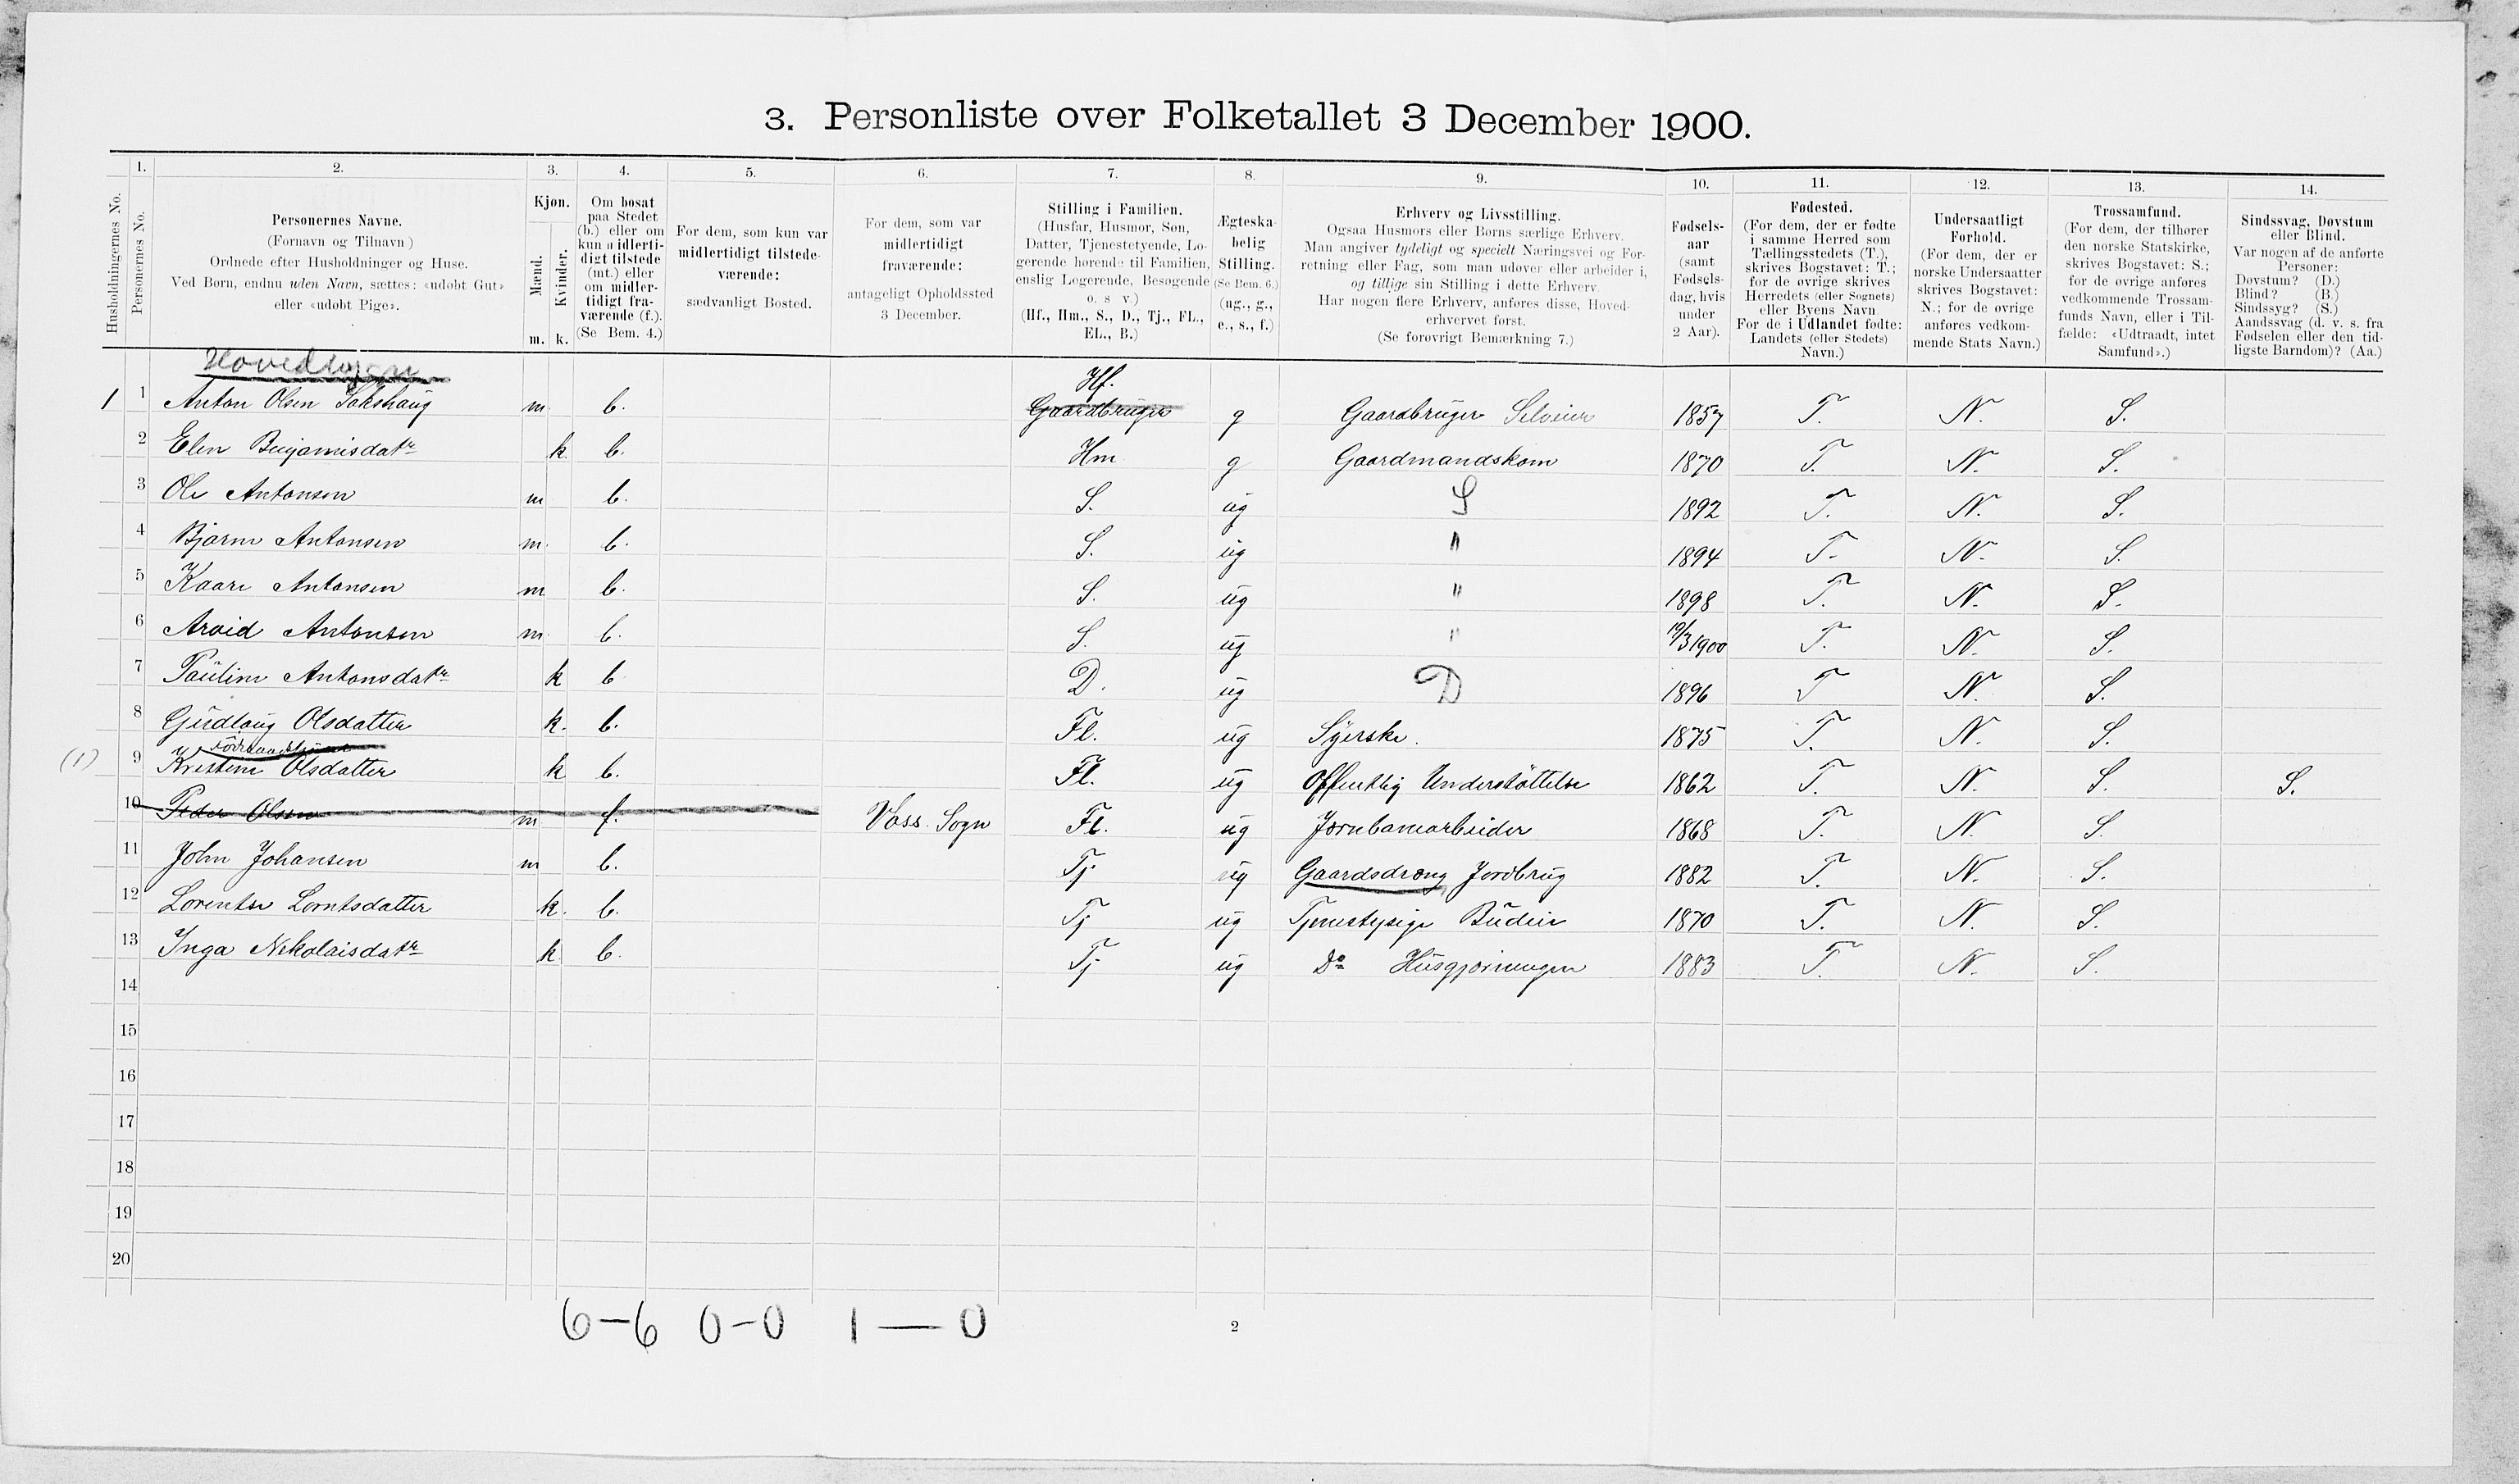 3. Personliste over Folketallet 3 December 1900.
1. 2. 3. 4. 5. 6. 7. 8. 9. 10. 11. 12. 13. 14.
Husholdningernes No.
Personernes No.
Personernes Navne.
(Fornavn og Tilnavn)
Ordnede efter Husholdninger og Huse.
Ved Børn, endnu uden Navn, sættes: «udøbt Gut»
eller «udøbt Pige».
Kjøn.
Mænd.
Kvinder.
m. k.
Om bosat
paa Stedet
(b.) eller om
kun midlerti-
digt tilstede
(mt.) eller
om midler-
tidigt fra-
værende (f.).
(Se Bem. 4.)
For dem, som kun var
midlertidigt tilstede-
værende:
sædvanligt Bosted.
For dem, som var
midlertidigt
fraværende:
antageligt Opholdssted
3 December.
Stilling i Familien.
(Husfar, Husmor, Søn,
Datter, Tjenestetyende, Lo-
gerende hørende til Familien,
enslig Logerende, Besøgende
o. s v.)
(Hf., Hm., S., D., Tj., FL.,
EL., B.)
Ægteska-
belig
Stilling.
(Se Bem. 6.)
(ug., g.,
e., s., f.)
Erhverv og Livsstilling.
Ogsaa Husmors eller Børns særlige Erhverv.
Man angiver tydeligt og specielt Næringsvei og For-
retning eller Fag, som man udøver eller arbeider i,
og tillige sin Stilling i dette Erhverv
Har nogen flere Erhverv, anføres disse, Hoved-
erhvervet først.
(Se forøvrigt Bemærkning 7.)
Fødsels-
aar
(samt
Fødsels-
dag, hvis
under
2 Aar).
Fødested.
(For dem, der er fødte
i samme Herred som
Tællingsstedets (T.),
skrives Bogstavet: T.;
for de øvrige skrives
Herredets (eller Sognets)
eller Byens Navn
For de i Udlandet fødte:
Landets (eller Stedets)
Navn.)
Undersaatligt
Forhold.
(For dem, der er
norske Undersaatter
skrives Bogstavet:
N.; for de øvrige
anføres vedkom-
mende Stats Navn.)
Trossamfund.
(For dem, der tilhører
den norske Statskirke,
skrives Bogstavet: S.;
for de øvrige anføres
vedkommende Trossam-
funds Navn, eller i Til-
fælde: «Udtraadt, intet
Samfund».)
Sindssvag, Døvstum
eller Blind.
Var nogen af de anførte
Personer:
Døvstum? (D.)
Blind? (B.)
Sindssyg? (S.)
Aandssvag (d. v. s. fra
Fødselen eller den tid-
ligste Barndom)? (Aa.)
Hf.
1 1 Anton Olsen Sakshaug m. b. Gaardbruger g Gaardbruger Selveier 1857 T. N. S.
2 Elen Benjamisdatr k b. Hm g Gaardmandskone 1870 T. N. S.
3 Ole Antonsen m b. S. ug S 1892 T. N. S.
4 Bjarne Antonsen m. b. S. ug " 1894 T. N. S.
5 Kaare Antonsen m b. S. ug " 1898 T. N. S.
6 Arvid Antonsen m. b. S. ug " 19/3 1900 T. N. S.
7 Pauline Antonsdatr k b D. ug D 1896 T N. S.
8 Gudlaug Olsdatter k. b. Fl. ug Syerske. 1875 T. N. S.
(1) 9 Kristine Olsdatter k b. Fl. ug Offentlig Understöttelse 1862 T. N. S. S.
10 Peder Olsen m f. Voss Sogn Fl. ug Jernbanearbeider 1868 T. N. S.
11 John Johansen m b. Tj ug Gaardsdreng Jordbrug 1882 T. N. S.
12 Lorentse Lorntsdatter k. b. Tj ug Tjenestepige Budeie 1870 T. N. S.
13 Inga Nikolaisdatr k b. Tj ug Do Husgjerningen 1883 T. N. S.
14
15
16
17
18
19
20
6-6 0-0 1-0
2